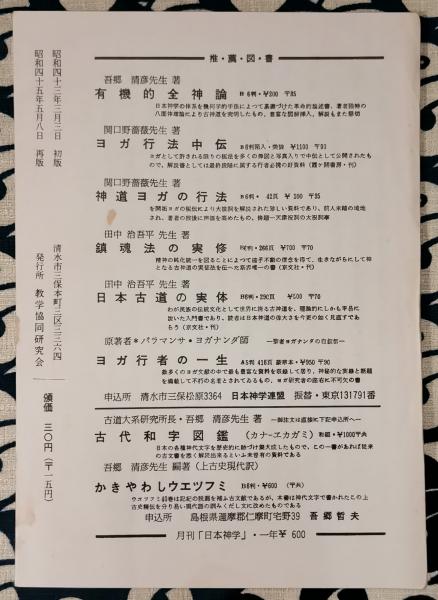 推・薦・図・書
吾郷 清彦先生 著
有機的全神論 B6判・¥200 〒85
日本神学の体系を幾何学的手法によつて基礎づけた革命的論述書、著者独特の
八面体理論により古神道を究明したもの、豊富な図解挿入、解説もまた懇切
関口野薔薇先生 著
ヨガ行法中伝 B6判箱入・美装 ¥1100 〒90
ヨガとして許される限りの秘法を多くの挿図と写真入りで中伝として公開されたも
ので、解説書としては最終段階に属する行者必携の好資料（霞ケ関書房・刊）
関口野薔薇先生 著
神道ヨガの行法 B6判・42頁 ¥200 〒35
を開拓ヨガの秘伝により大祓詞を解説された珍しい資料であり、前人未踏の境地
され、著者の授法に声価を高めたもの、後題一天津祝詞の太祝詞事
田中 治吾平 先生 著
鎮魂法の実修 B6判・266頁 ¥700 〒70
精神の純化統一を図ることによつて途子不動の信念を得て、生きながらにして神
となる古神道の実修法を伝った斯界唯一の書（京文社・刊）
田中 治吾平 先生 著
日本古道の実体 B6判・290頁 ¥500 〒70
わが民族の伝統文化として世界に誇る古神道を、理論的にしかも平易に
説いた入門書であり、読者は日本神道の偉大さを今更の如く見直すであ
ろう（京文社・刊）
原著者＊パラマンサ・ヨガナンダ師 ―聖者ヨガナンダの自叙伝―
ヨガ行者の一生 A5判 416頁 豪華本・¥950 〒90
数多くのヨガ文献の中で最も豊富な資料を収録して居り、神秘的な実録と断語
を満載して不朽の名著とされてゐるもの、ヨガ研究者の座右に不可欠の書
申込所 清水市三保松原3364 日本神学連盟 振替・東京131791番
古道大系研究所長・吾郷 清彦先生 著 ―御註文は直接に下記申込所へ―
古代和字図鑑 (カナ-ヱカガミ) 和綴・¥1000〒共
日本の各種神代文字を歴史的に跡づけ集大成したもので、この一書があれば従来
の古文書を悉く解読出来るといふ未曾有の資料である
吾郷 清彦先生 編著（上古史現代訳）
かきやわしウエツフミ B6判・¥600 （〒共）
ウエツフミ40巻は記紀の脱漏を補ふ古文献であるが、本書は神代文字で書かれたこの上
古史精伝を分り易い現代語の訓みくだし文に改めたものである
申込所 島根県邇摩郡仁摩町宅野39 吾郷哲夫
月刊「日本神学」・一年¥ 600
昭和四十三年三月三日 初版
昭和四十五年五月八日 再版
清水市三保本町三区三三六四
発行所 教学協同研究会
頒価 三〇円（〒一五円）